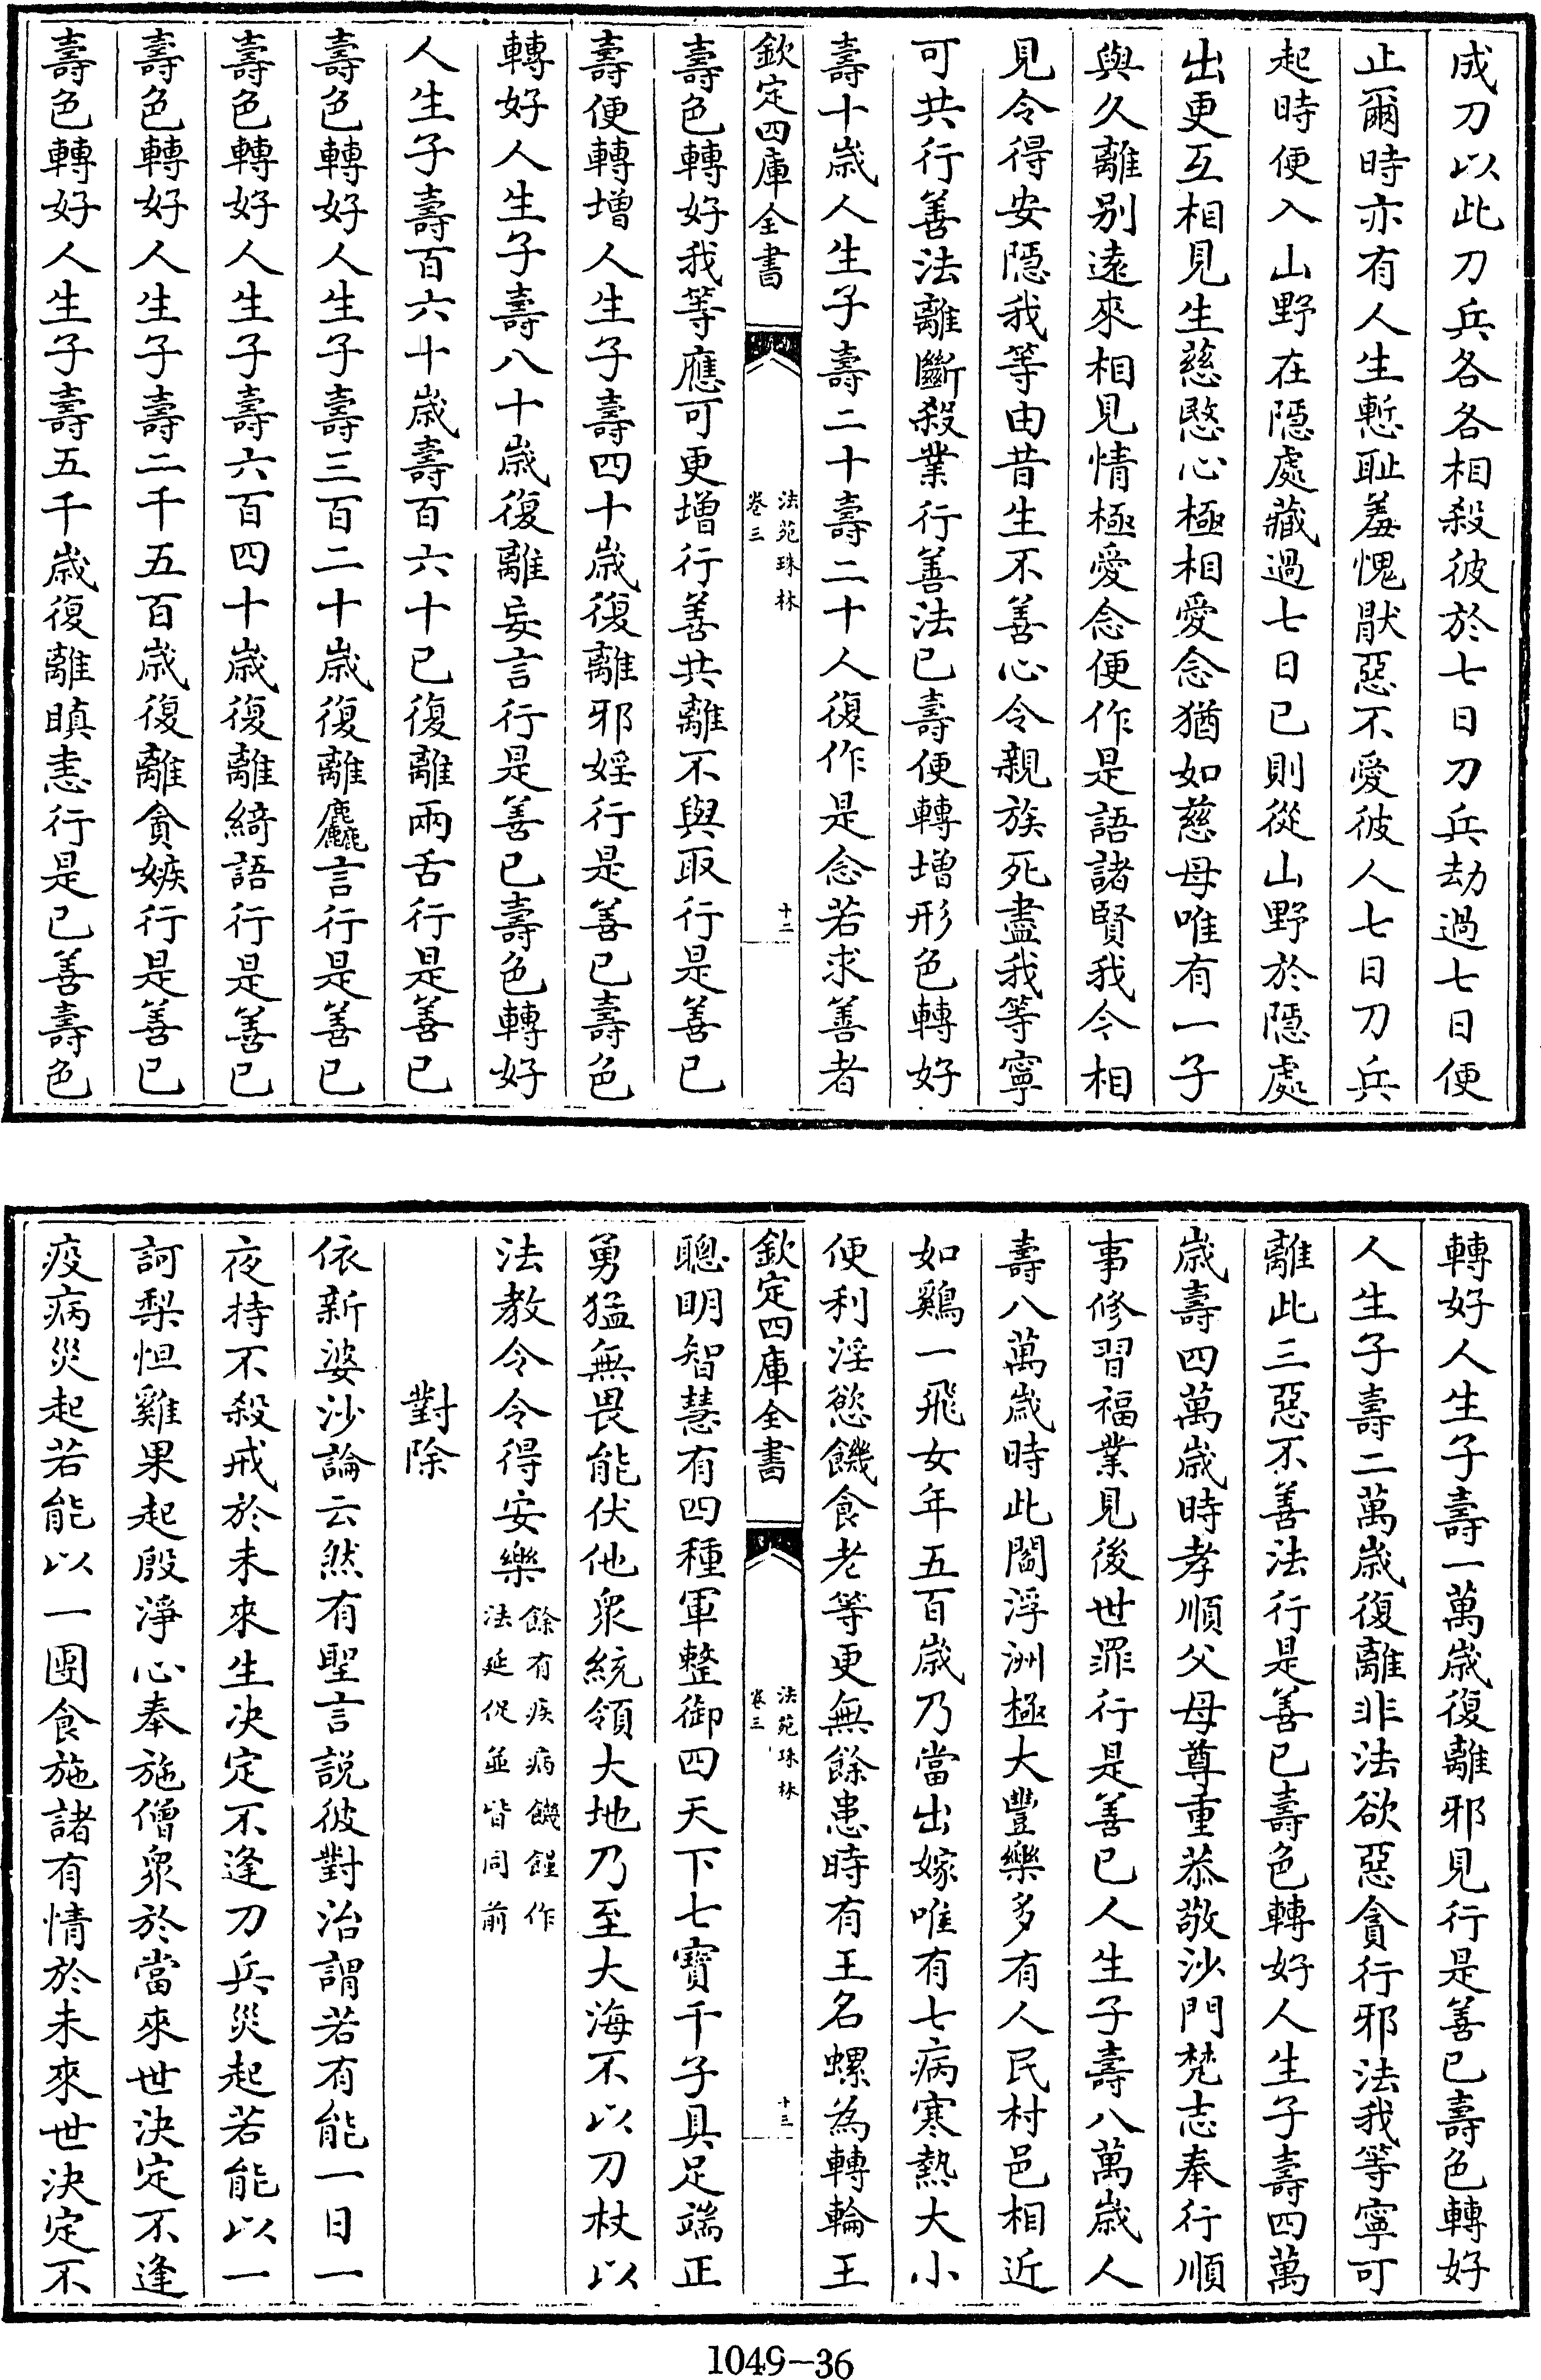 成刀以此刀兵各各相殺彼於七日刀兵劫過七日便
止爾時亦有人生慙耻羞愧厭惡不愛彼人七日刀兵
起時便入山野在隱處藏過七日已則從山野於隱處
出更互相見生慈愍心極相愛念猶如慈母唯有一子
與久離别遠來相見情極愛念便作是語諸賢我今相
見令得安隱我等由昔生不善心令親族死盡我等寧
可共行善法離斷殺業行善法已壽便轉增形色轉好
壽十歲人生子壽二十壽二十人復作是念若求善者
欽定四庫全書
法苑珠林
卷三
十二
壽色轉好我等應可更增行善共離不與取行是善已
壽便轉增人生子壽四十歲復離邪婬行是善已壽色
轉好人生子壽八十歲復離妄言行是善已壽色轉好
人生子壽百六十歲壽百六十已復離兩舌行是善已
壽色轉好人生子壽三百二十歲復離麤言行是善已
壽色轉好人生子壽六百四十歲復離綺語行是善已
壽色轉好人生子壽二千五百歲復離貪嫉行是善已
壽色轉好人生子壽五千歲復離瞋恚行是已善壽色
轉好人生子壽一萬歲復離邪見行是善已壽色轉好
人生子壽二萬歲復離非法欲惡貪行邪法我等寧可
離此三惡不善法行是善已壽色轉好人生子壽四萬
歲壽四萬歲時孝順父母尊重恭敬沙門梵志奉行順
事修習福業見後世罪行是善已人生子壽八萬歲人
壽八萬歲時此閻浮洲極大豐樂多有人民村邑相近
如鷄一飛女年五百歲乃當出嫁唯有七病寒熱大小
便利淫慾饑食老等更無餘患時有王名螺為轉輪王
欽定四庫全書
法苑珠林
卷三
十三
聰明智慧有四種軍整御四天下七寶千子具足端正
勇猛無畏能伏他衆統領大地乃至大海不以刀杖以
法教令令得安樂餘有疾病饑饉作
法延促並皆同前
對除
依新婆沙論云然有聖言説彼對治謂若有能一日一
夜持不殺戒於未來生决定不逢刀兵災起若能以一
訶梨怛雞果起殷淨心奉施僧衆於當來世決定不逢
疫病災起若能以一團食施諸有情於未來世決定不
1049-36